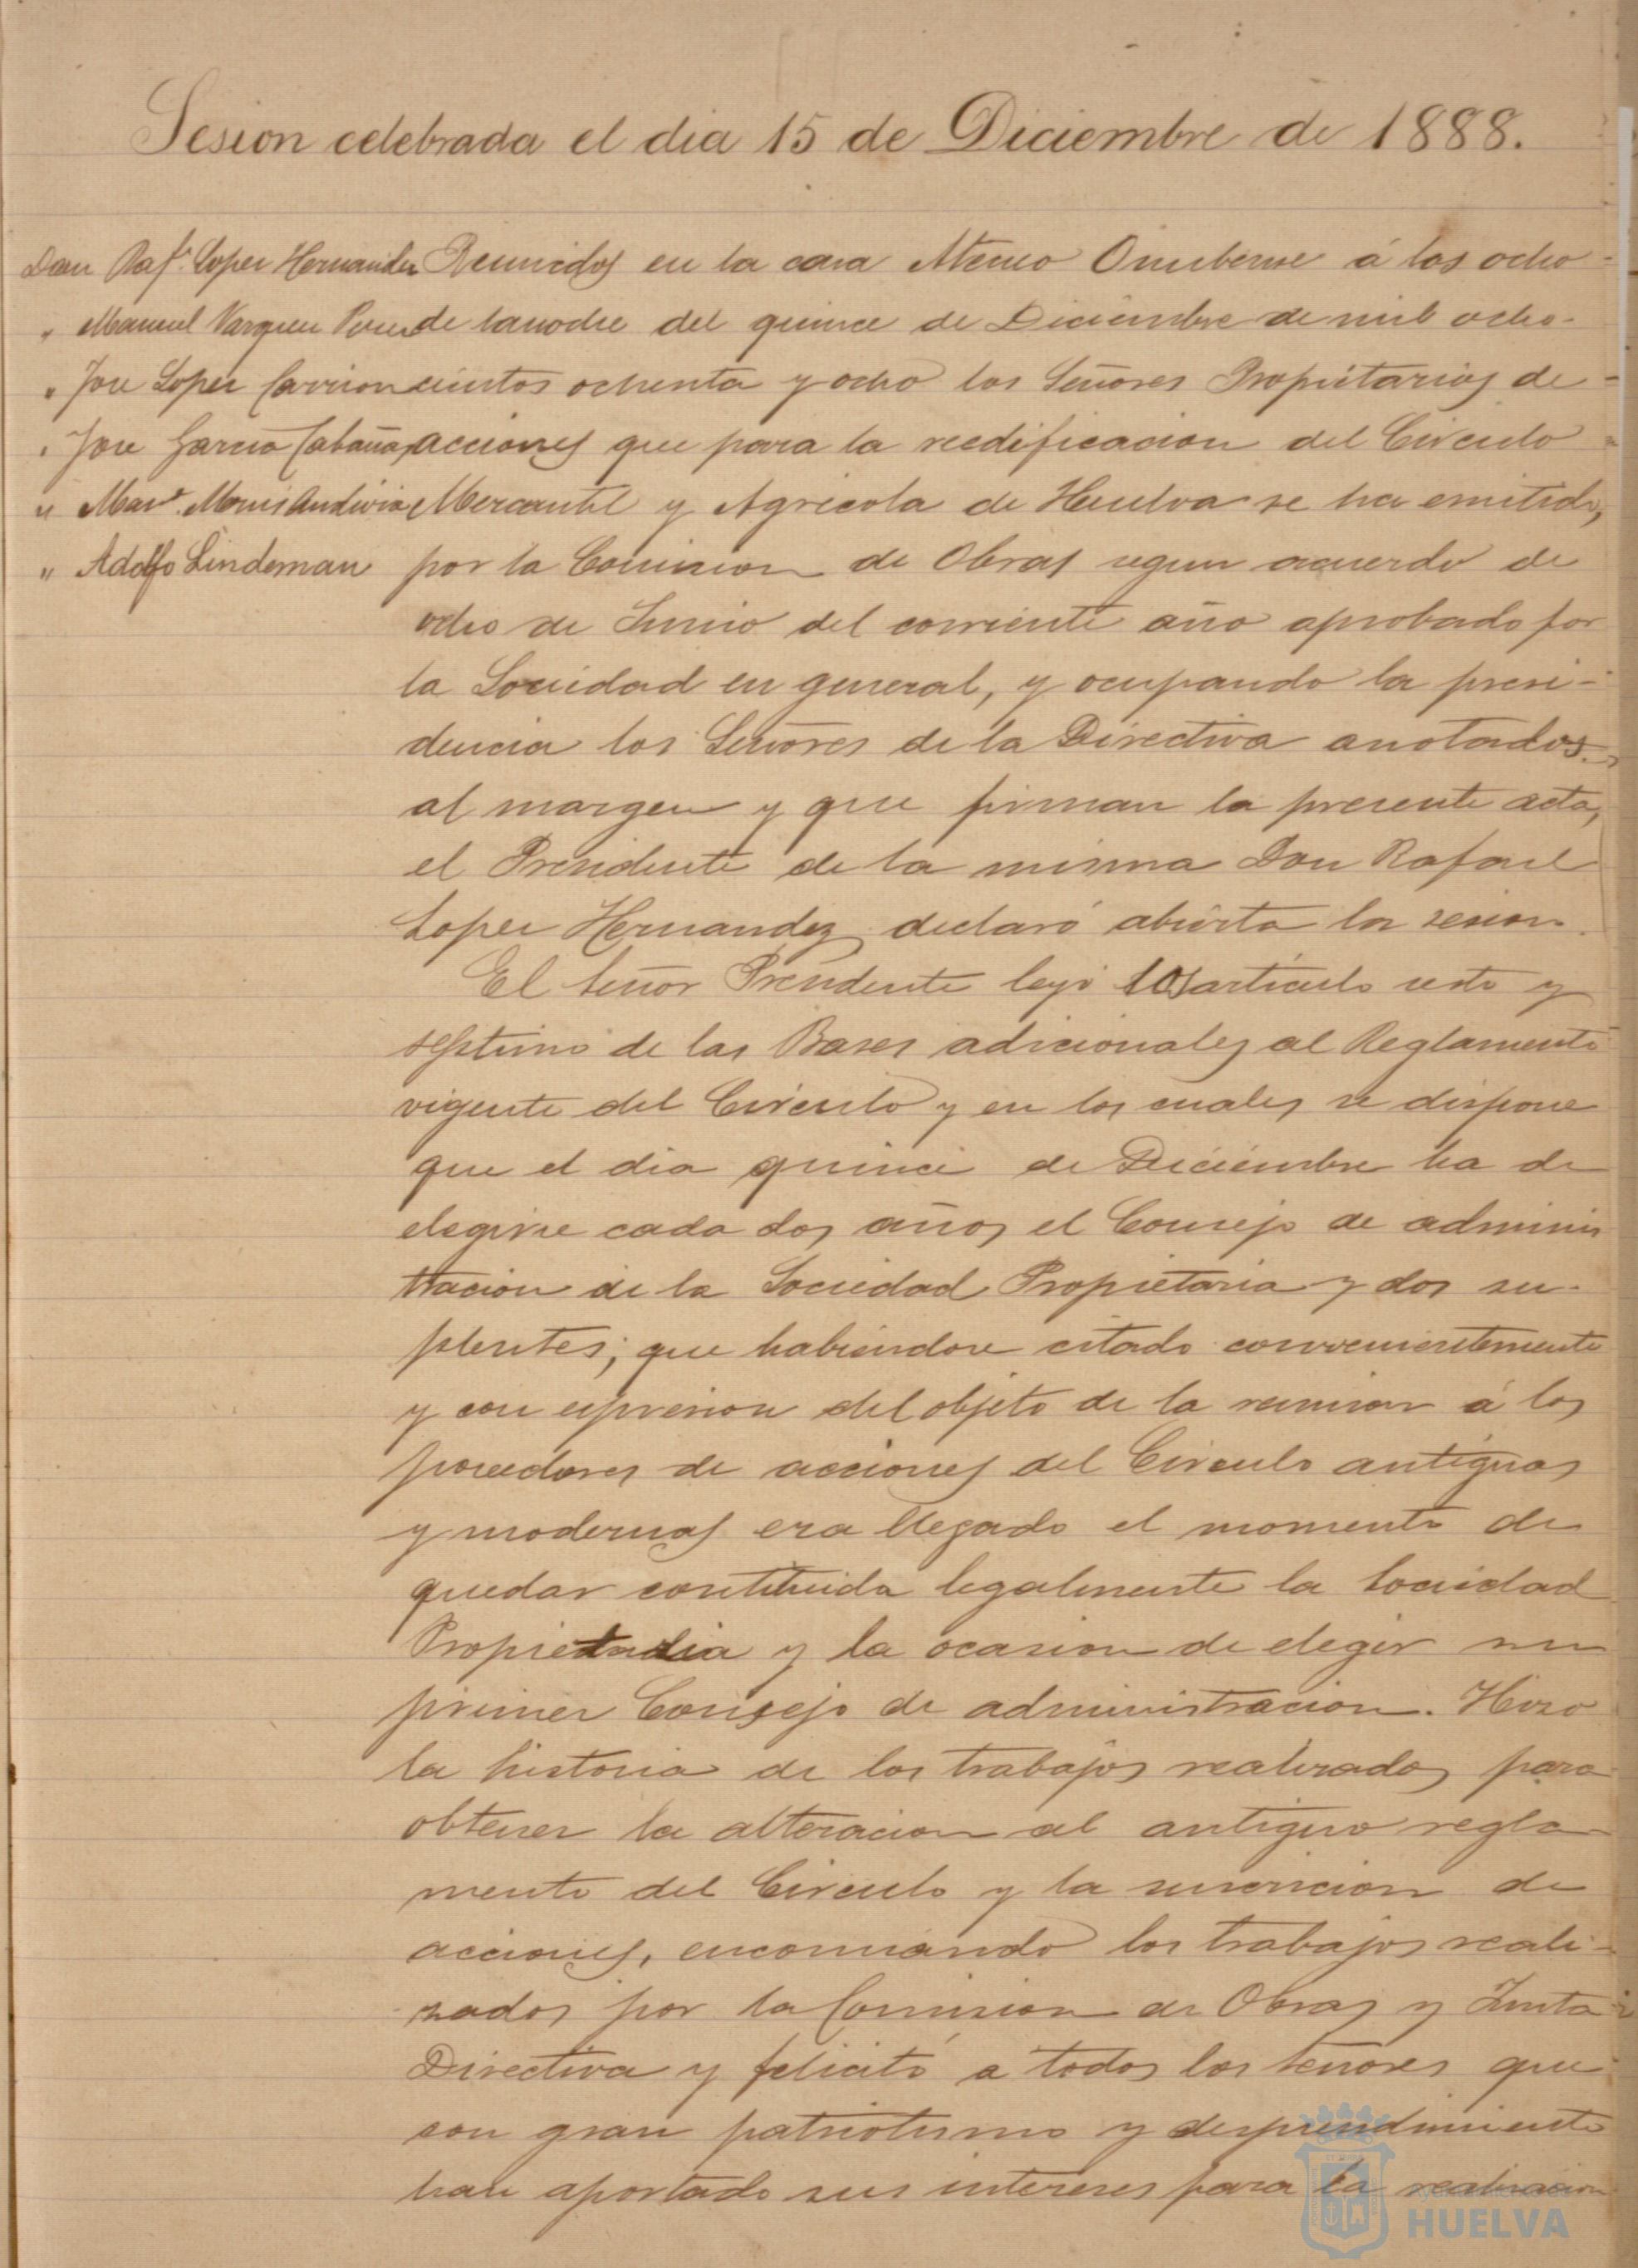 Sesion celebrada el dia 15 de Diciembre de 1888.
Don Raf.l Lopez Hernandez
" Manuel Vazquez Perez
" Jose Lopez Carrion
" Jose Garcia Cabañas
" Man.l Moris Andivia
" Adolfo Lindeman
Reunidos en la casa Ateneo Onubense á las ocho
de la noche del quince de Diciembre de mil ocho-
cientos ochenta y ocho los Señores Propietarios de
acciones que para la reedificacion del Circulo
Mercantil y Agricola de Huelva se ha emitido,
por la Comision de Obras segun acuerdo de
ocho de Junio del corriente año aprobado por
la Sociedad en general, y ocupando la presi-
dencia los Señores de la Directiva anotados
al margen y que firman la presente acta,
el Presidente de la misma Don Rafael
Lopez Hernandez declaró abierta la sesion.
El Señor Presidente leyó los articulo sesto y
septimo de las Bases adicionales al Reglamento
vigente del Circulo y en los cuales se dispone
que el dia quince de Diciembre ha de
elegirse cada dos años el Consejo de adminis
tracion de la Sociedad Propietaria y dos su-
plentes; que habiendose citado convenientemente
y con espresion del objeto de la reunion á los
poseedores de acciones del Circulo antiguas
y modernas era llegado el momento de
quedar constituida legalmente la Sociedad
Propietaria y la ocasion de elegir su
primer Consejo de administracion. Hizo
la historia de los trabajos realizados para
obtener la alteracion al antiguo regla-
mento del Circulo y la suscricion de
acciones, encomiando los trabajos reali-
zados por la Comision de Obras y Junta
Directiva y felicitó a todos los señores que
con gran patriotismo y desprendimiento
han aportado sus intereses para la realizacion
HUELVA